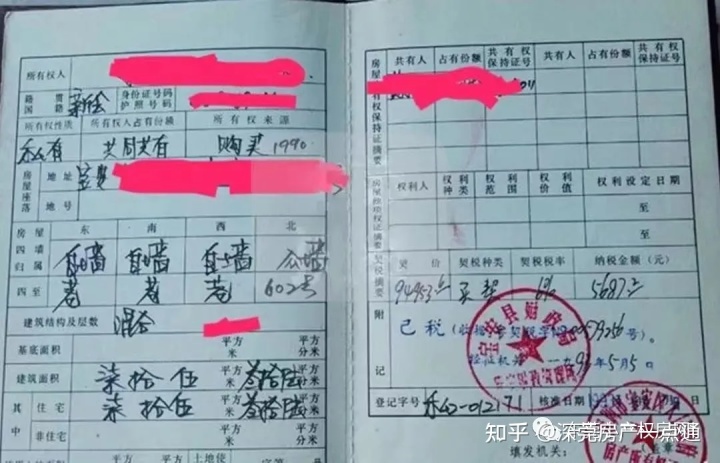 所有权人
籍贯
国籍
新会
身份证号码
护照号码
所有权性质
所有权人占有份额
所有权来源
私有
共同共有
购买1990
房屋座落
地址
宝安
地号
房屋
四墙
归属
东
南
西
北
自墙
自墙
自墙
四至
巷
巷
巷
602号
建筑结构及层数
混合
基底面积
平方米
平方分米
建筑面积
柒拾伍
平方米
叁拾陆
平方分米
其中
住宅
柒拾伍
平方米
叁拾陆
平方分米
非住宅
平方米
平方分米
土地使
房屋共有权保持证摘要
共有人
占有份额
共有权保持证号
共有人
占有份额
共有权保持证号
房屋他项权证摘要
权利人
权利种类
权利范围
权利价值
权利设定日期
至
至
契税摘要
契价
契税种类
契税税率
纳税金额(元)
买契
6%
附记
已税
号)。
5月5日
宝安县财政局
登记字号
核准日期
填发机关:
知乎 @深莞房产权点通